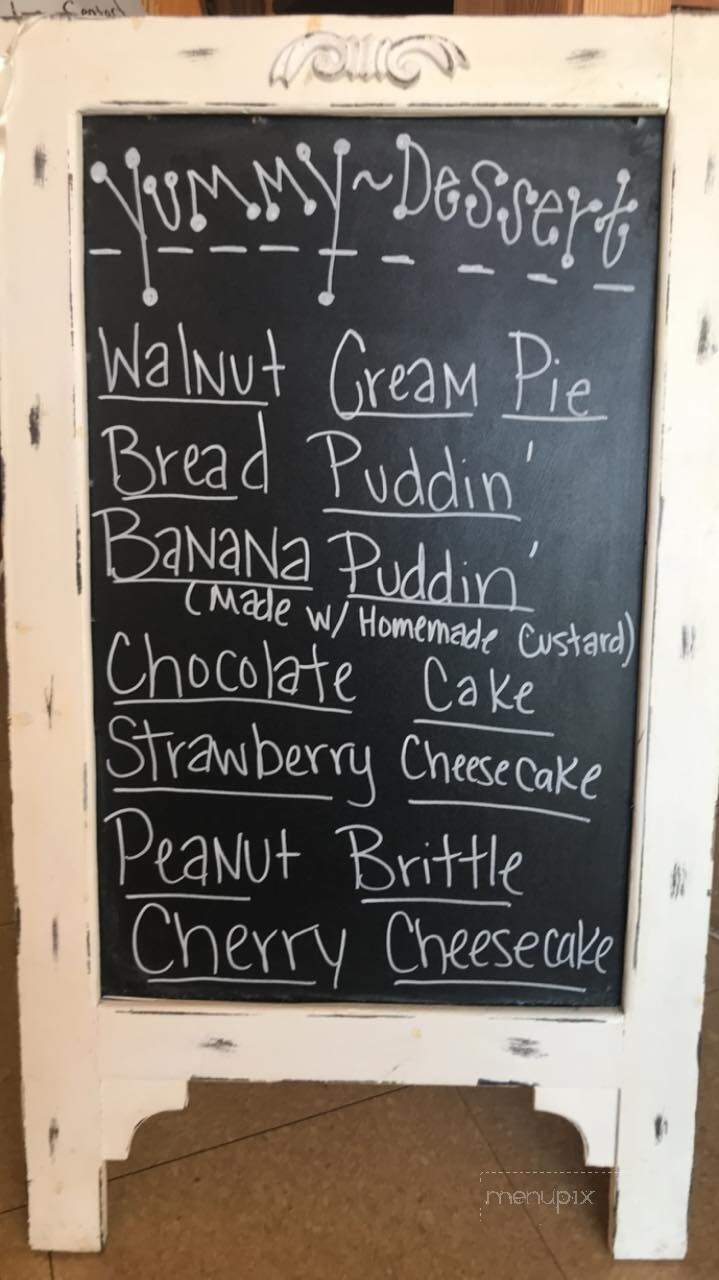 Yummy~Dessert
Walnut Cream Pie
Bread Puddin'
Banana Puddin'
(Made w/ Homemade Custard)
Chocolate Cake
Strawberry Cheesecake
Peanut Brittle
Cherry Cheesecake
menupix